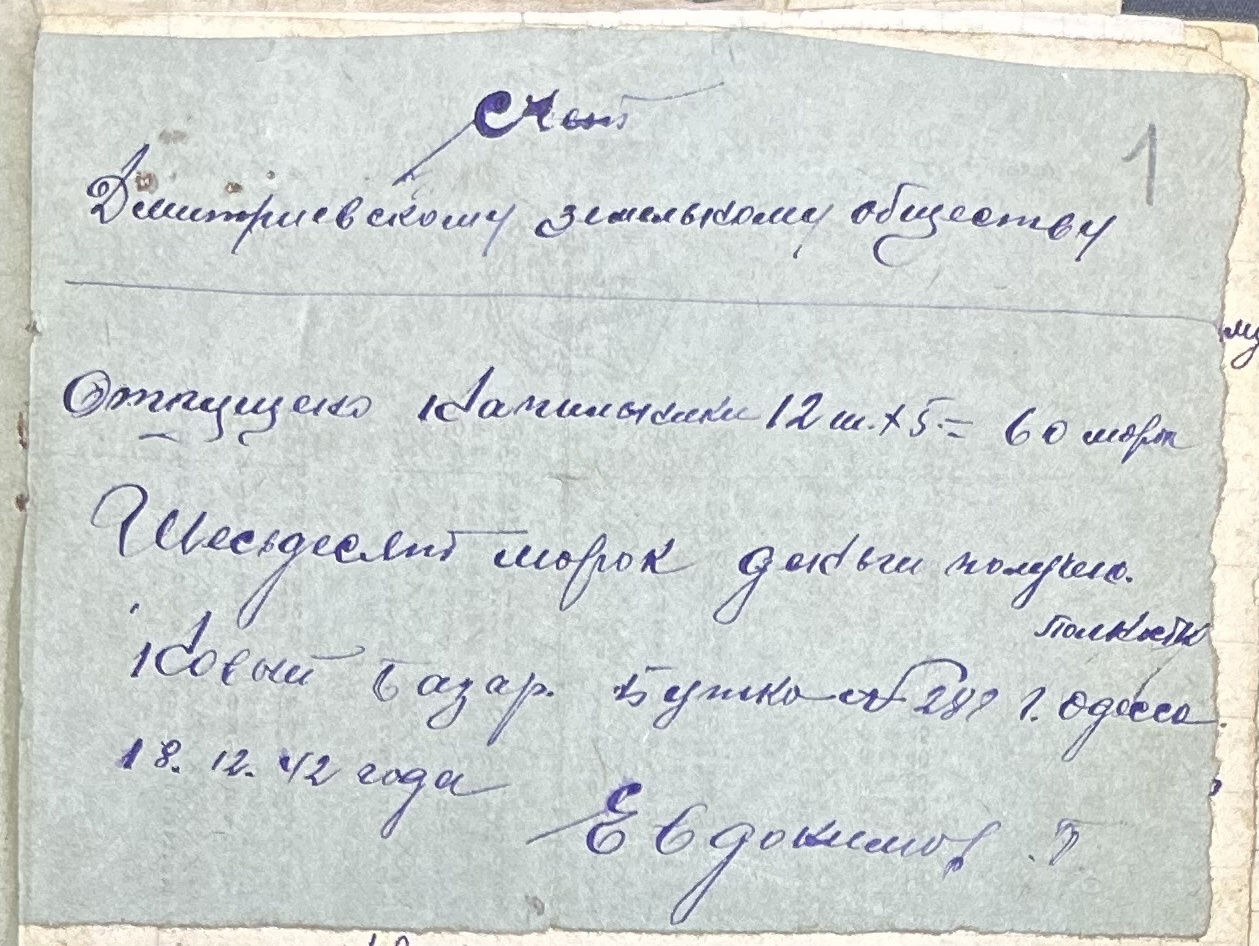 Счет
1
Дмитриевскому земельному обществу
Отпущено напильники 12 ш. х 5. = 60 марок
Шесьдесят марок деньги получено.
полностю
Новый базар. Будка № г. Одесса.
18. 12. 42 года
Евдокимов. Г